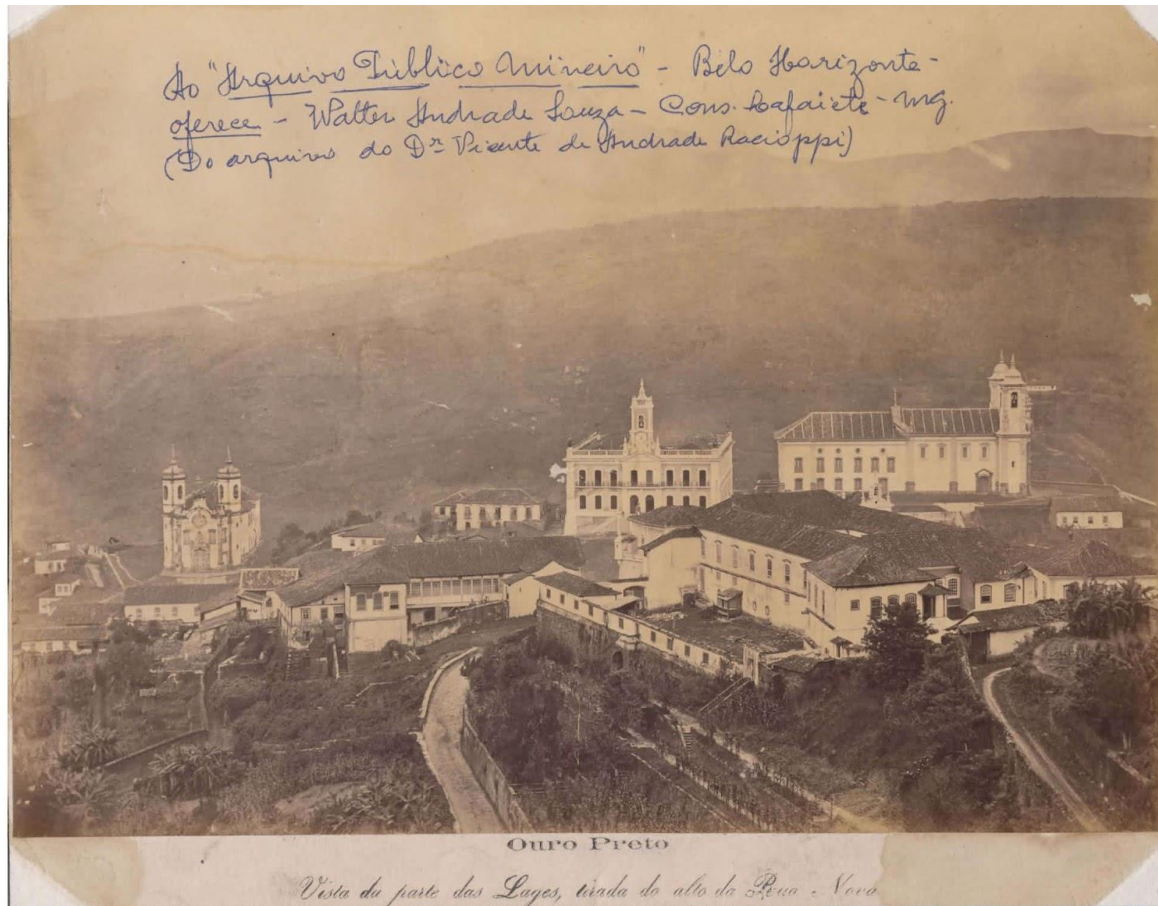 Ao "Arquivo Público Mineiro" - Belo Horizonte -
oferece - Walter Andrade Souza - Cons. Lafaiete - MG.
(Do arquivo do Dr. Vicente de Andrade Racioppi)
Ouro Preto
Vista da parte das Lages, tirada do alto da Rua - Nova